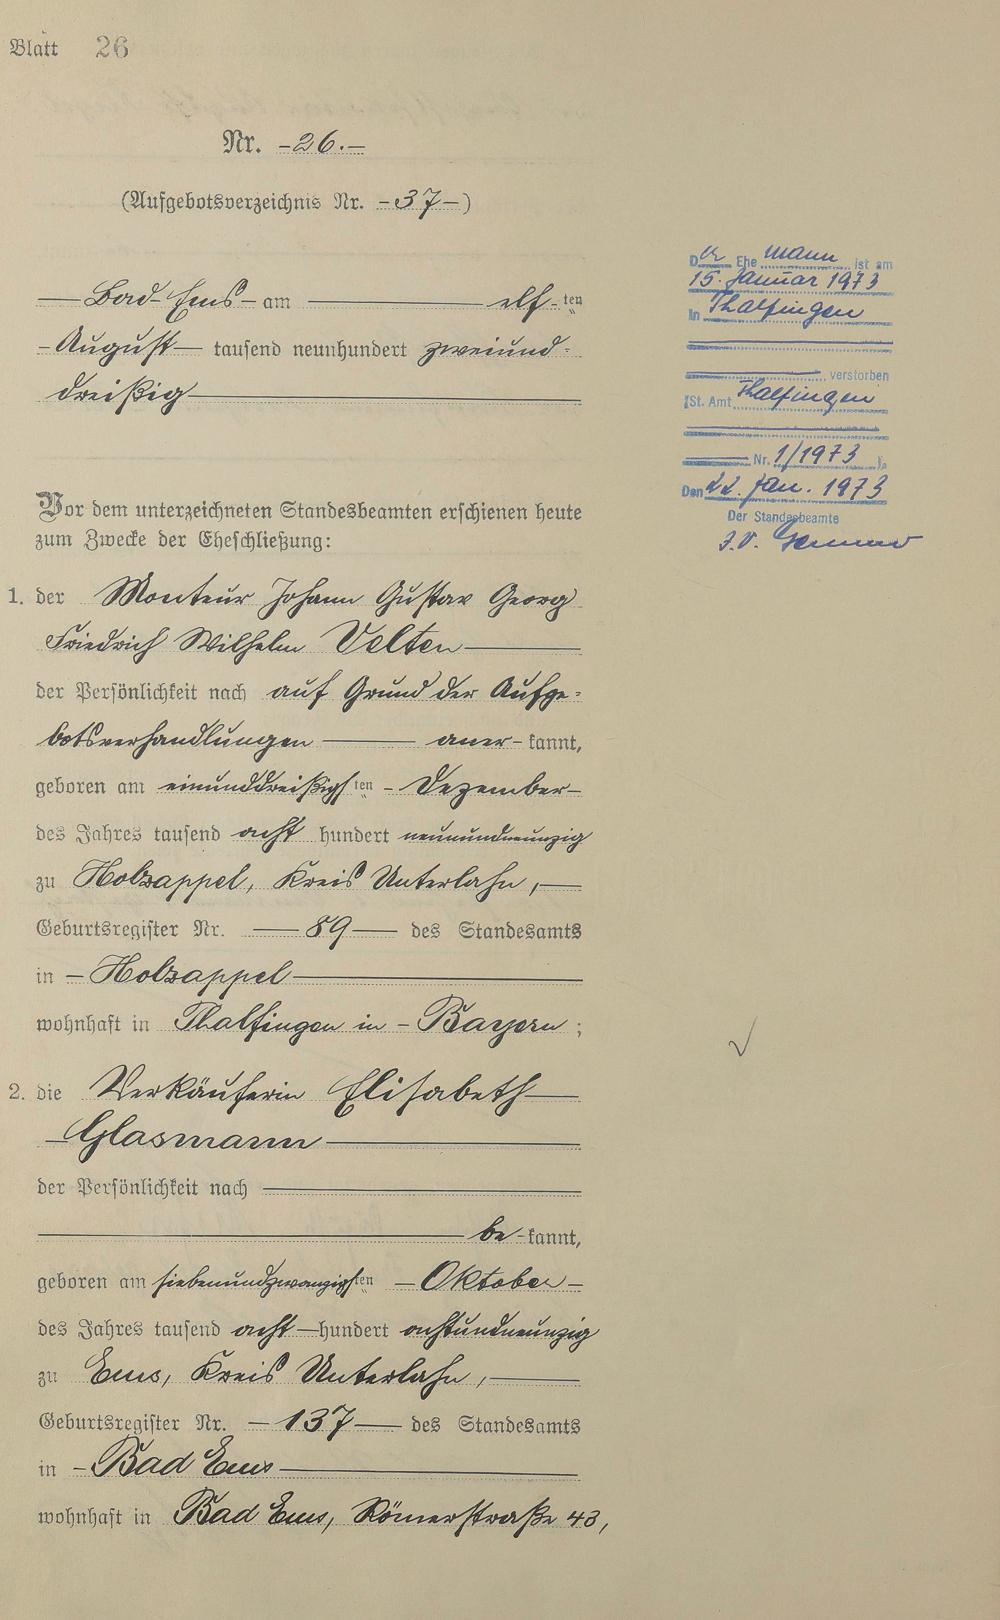 Blatt 26
Nr. -26.-
(Aufgebotsverzeichnis Nr. -37-)
Bad-Ems- am elf-ten
-August- tausend neunhundert zweiund-
dreißig
Vor dem unterzeichneten Standesbeamten erschienen heute
zum Zwecke der Eheschließung:
1. der Monteur Johann Gustav Georg
Friedrich Wilhelm Velten
der Persönlichkeit nach auf Grund der Aufge-
botsverhandlungen aner-kannt,
geboren am einunddreißigsten - Dezember-
des Jahres tausend acht hundert neunundneunzig
zu Holzappel, Kreis Unterlahn,
Geburtsregister Nr. 89 des Standesamts
in - Holzappel
wohnhaft in Thalfingen in - Bayern;
2. die Verkäuferin Elisabeth
Glasmann
der Persönlichkeit nach
be-kannt,
geboren am siebenundzwanzigsten - Oktober-
des Jahres tausend acht-hundert achtundneunzig
zu Ems, Kreis Unterlahn,
Geburtsregister Nr. -137- des Standesamts
in - Bad Ems
wohnhaft in Bad Ems, Römerstraße 43,
Der Ehemann ist am
15. Januar 1973
in Thalfingen
verstorben
(St. Amt Thalfingen
Nr. 1/1973).
Den 22. Jan. 1973
Der Standesbeamte